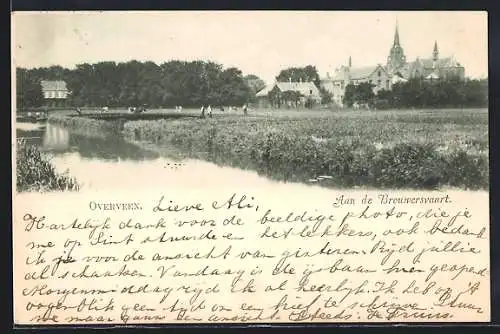 OVERVEEN.
Aan de Brouwersvaart.
Lieve Ali,
Hartelijk dank voor de beeldige photo, die je
me op Sint stuurde en het lekkers, ook bedank
ik je voor de ansicht van gisteren. Rijd jullie
de schaatsen. Vandaag is de ijsbaan hier geopend
Morgenmiddag rijd ik al heerlijk. Ik heb op 't
oogenblik geen tijd om een brief te schrijven
me maar gauw een ansicht. Steeds: Je Truus.